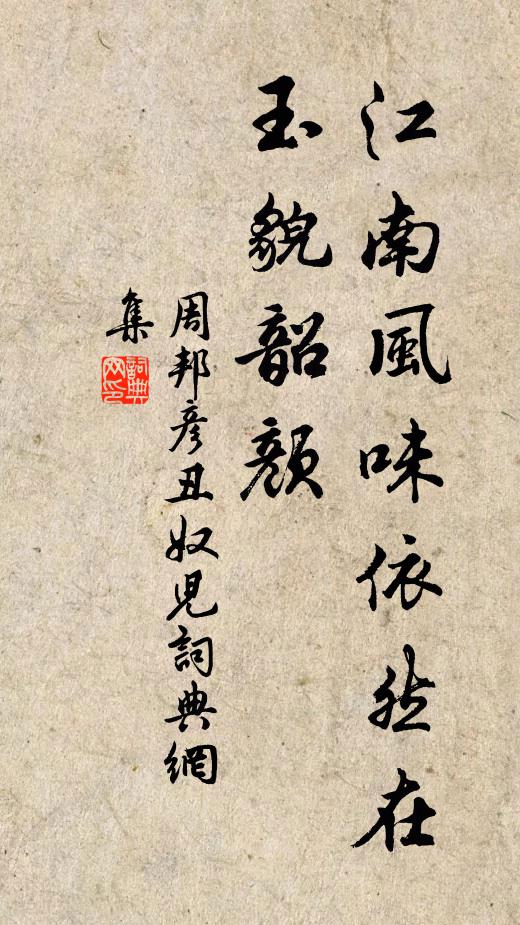 江南風味依然在
玉貌韶顏
周邦彥丑奴兒詞典網
集
詞典网印